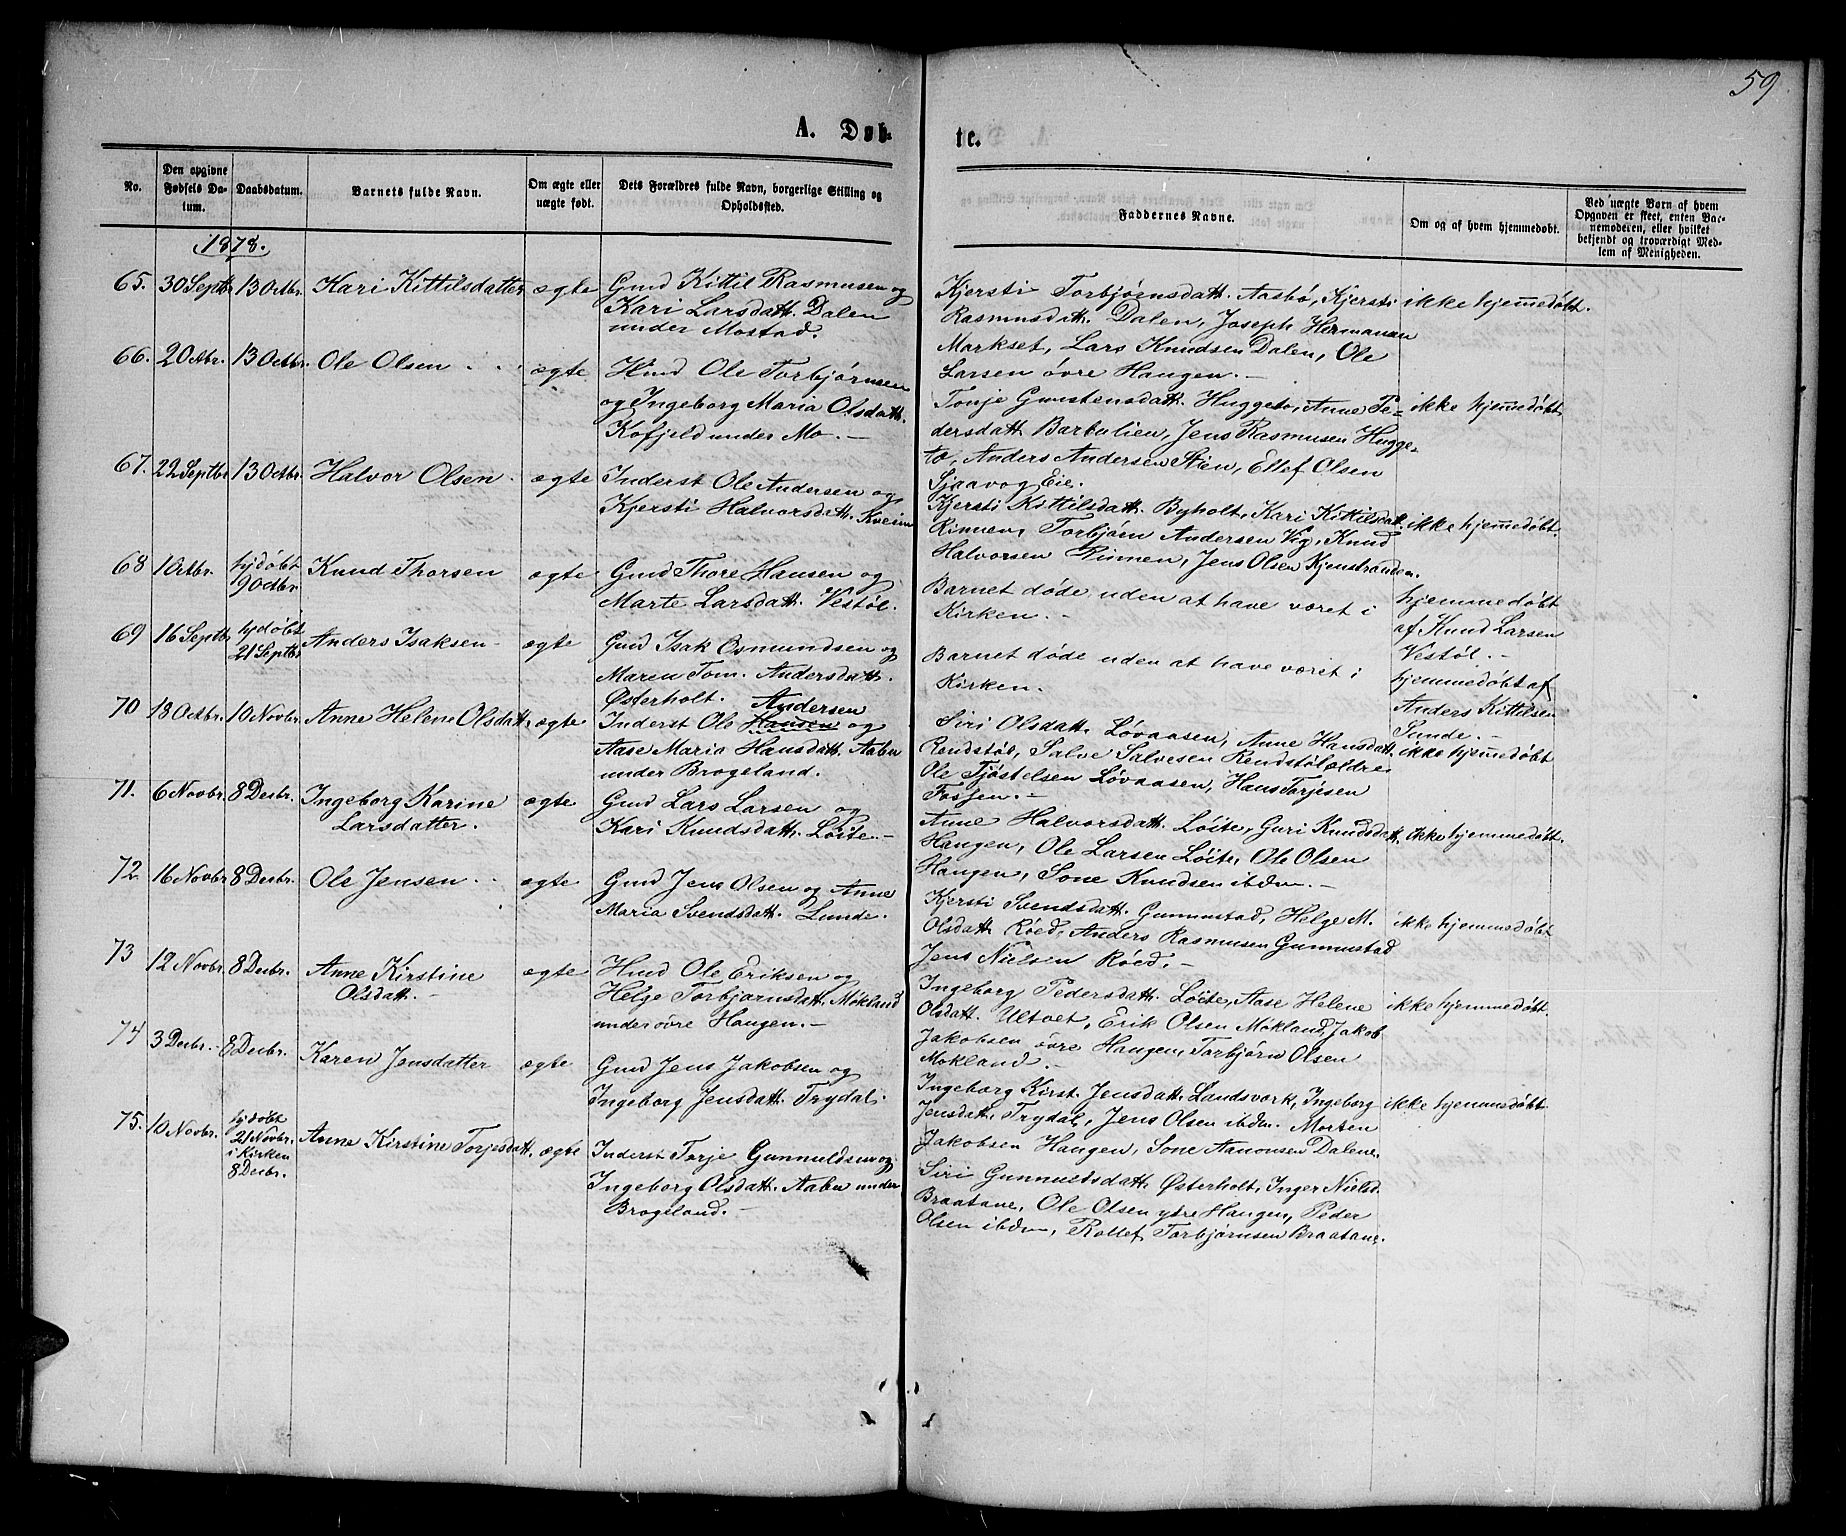 59
A. Døb-
te.
No.
Den opgivne Fødsels Datum.
Daabsdatum.
Barnets fulde Navn.
Om ægte eller uægte født.
Dets Forældres fulde Navn, borgerlige Stilling og Opholdssted.
Faddernes Navne.
Om og af hvem hjemmedøbt.
Ved uægte Børn af hvem Opgaven er skeet, enten Barnemoderen, eller hvilket bekjendt og troværdigt Medlem af Menigheden.
1878.
65. 30 Septbr 13 Octbr. Kari Kittilsdatter ægte
Gmd Kittil Rasmusen og
Kari Larsdatt. Dalen
under Mostad.
Kjersti Torbjørnsdatt. Aasbø, Kjersti
Rasmusdatt. Dalen, Joseph Hermansen
Markset, Lars Knudsen Dalen, Ole
Larsen övre Haugen.-
ikke hjemmedøbt.
66. 2 Octbr. 13 Octbr. Ole Olsen ægte
Hmd Ole Torbjørnsen
og Ingeborg Maria Olsdatt.
Kofjeld under Mo.-
Tonje Gunstensdatt. Huggeto, Anne Pe-
dersdatt Barbulien, Jens Rasmusen Hugge-
to, Anders Andersen Stien, Ellef Olsen
Sjaavog Eie.
ikke hjemmedøbt.
67. 22 Septbr 13 Octbr. Halvor Olsen. ægte
Inderst Ole Andersen og
Kjersti Halvorsdatt. Kveim
Kjersti Kittilsdatt. Byholt, Kari Kittilsdatt.
Rinnen, Torbjørn Andersen Vig, Knud
Halvorsen Rinnen, Jens Olsen Kjenstranden.
ikke hjemmedøbt.
68 1 Octbr. hjdøbt
9 Octbr Knud Thorsen ægte
Gmd Thore Hansen og
Marte Larsdatt. Vestøl.
Barnet døde uden at have været i
Kirken.-
hjemmedøbt
af Knud Larsen
Vestøl.-
69 16 Septbr hjdøbt
21 Septbr Anders Isaksen- ægte
Gmd Isak Osmundsen og
Maren Tom. Andersdatt.
Østerholt.
Barnet døde uden at have været i
Kirken.
hjemmedøbt af
Anders Kittilsen
Sunde.-
70 18 Octbr. 10 Novbr. Anne Helene Olsdatt. ægte
Andersen
Inderst Ole Hansen og
Aase Maria Hansdatt. Aabu
under Brogeland.
Siri Olsdatt. Løvaasen, Anne Hansdatt
Rendstøl, Salve Salvesen Rendstøl ældre
Ole Tjøstelsen Løvaasen, Hans Torjesen
Fossen.-
ikke hjemmedøbt
71. 6 Novbr. 8 Decbr. Ingeborg Karine
Larsdatter. ægte
Gmd Lars Larsen og
Kari Knudsdatt. Løite.-
Anne Halvorsdatt. Løite, Guri Knudsdatt.
Haugen, Ole Larsen Løite, Ole Olsen
Haugen, Sone Knudsen ibdm.-
ikke hjemmedøbt.
72 16 Novbr 8 Decbr. Ole Jensen ægte
Gmd Jens Olsen og Anne
Maria Svendsdatt. Lunde.
Kjersti Svendsdatt. Gunnustad, Helge M.
Olsdatt Røed, Anders Rasmusen Gunnustad
Jens Nielsen Røed.-
ikke hjemmedøbt
73 12 Novbr. 8 Decbr. Anne Kirstine
Olsdatt.- ægte
Hmd Ole Eriksen og
Helge Torbjørnsdatt. Møkland
under øvre Haugen.-
Ingeborg Pedersdatt. Løite, Aase Helene
Olsdatt. Ultvet, Erik Olsen Møkland, Jakob
Jakobsen övre Haugen, Torbjørn Olsen
Møkland.-
ikke hjemmedøbt.
74 3 Decbr. 8 Decbr. Karen Jensdatter ægte
Gmd Jens Jakobsen og
Ingeborg Jensdatt. Trydal.
Ingeborg Kirst. Jensdatt. Landsverk, Ingeborg
Jensdatt, Trydal, Jens Olsen ibdm. Morten
Jakobsen Haugen, Sone Aanonsen Dalene.
ikke hjemmedøbt.
75. 10 Novbr. hjdøbt
21 Novbr.
i Kirken
8 Decbr. Anne Kirstine Torjesdatt. ægte
Inderst Torje Gunnuldsen og
Ingeborg Olsdatt. Aabu under
Brogeland.-
Siri Gunnuldsdatt. Østerholt, Inger Nielsd.
Braatane, Ole Olsen ytre Haugen, Peder
Olsen ibdm, Rollef Torbjørnsen Braatane.